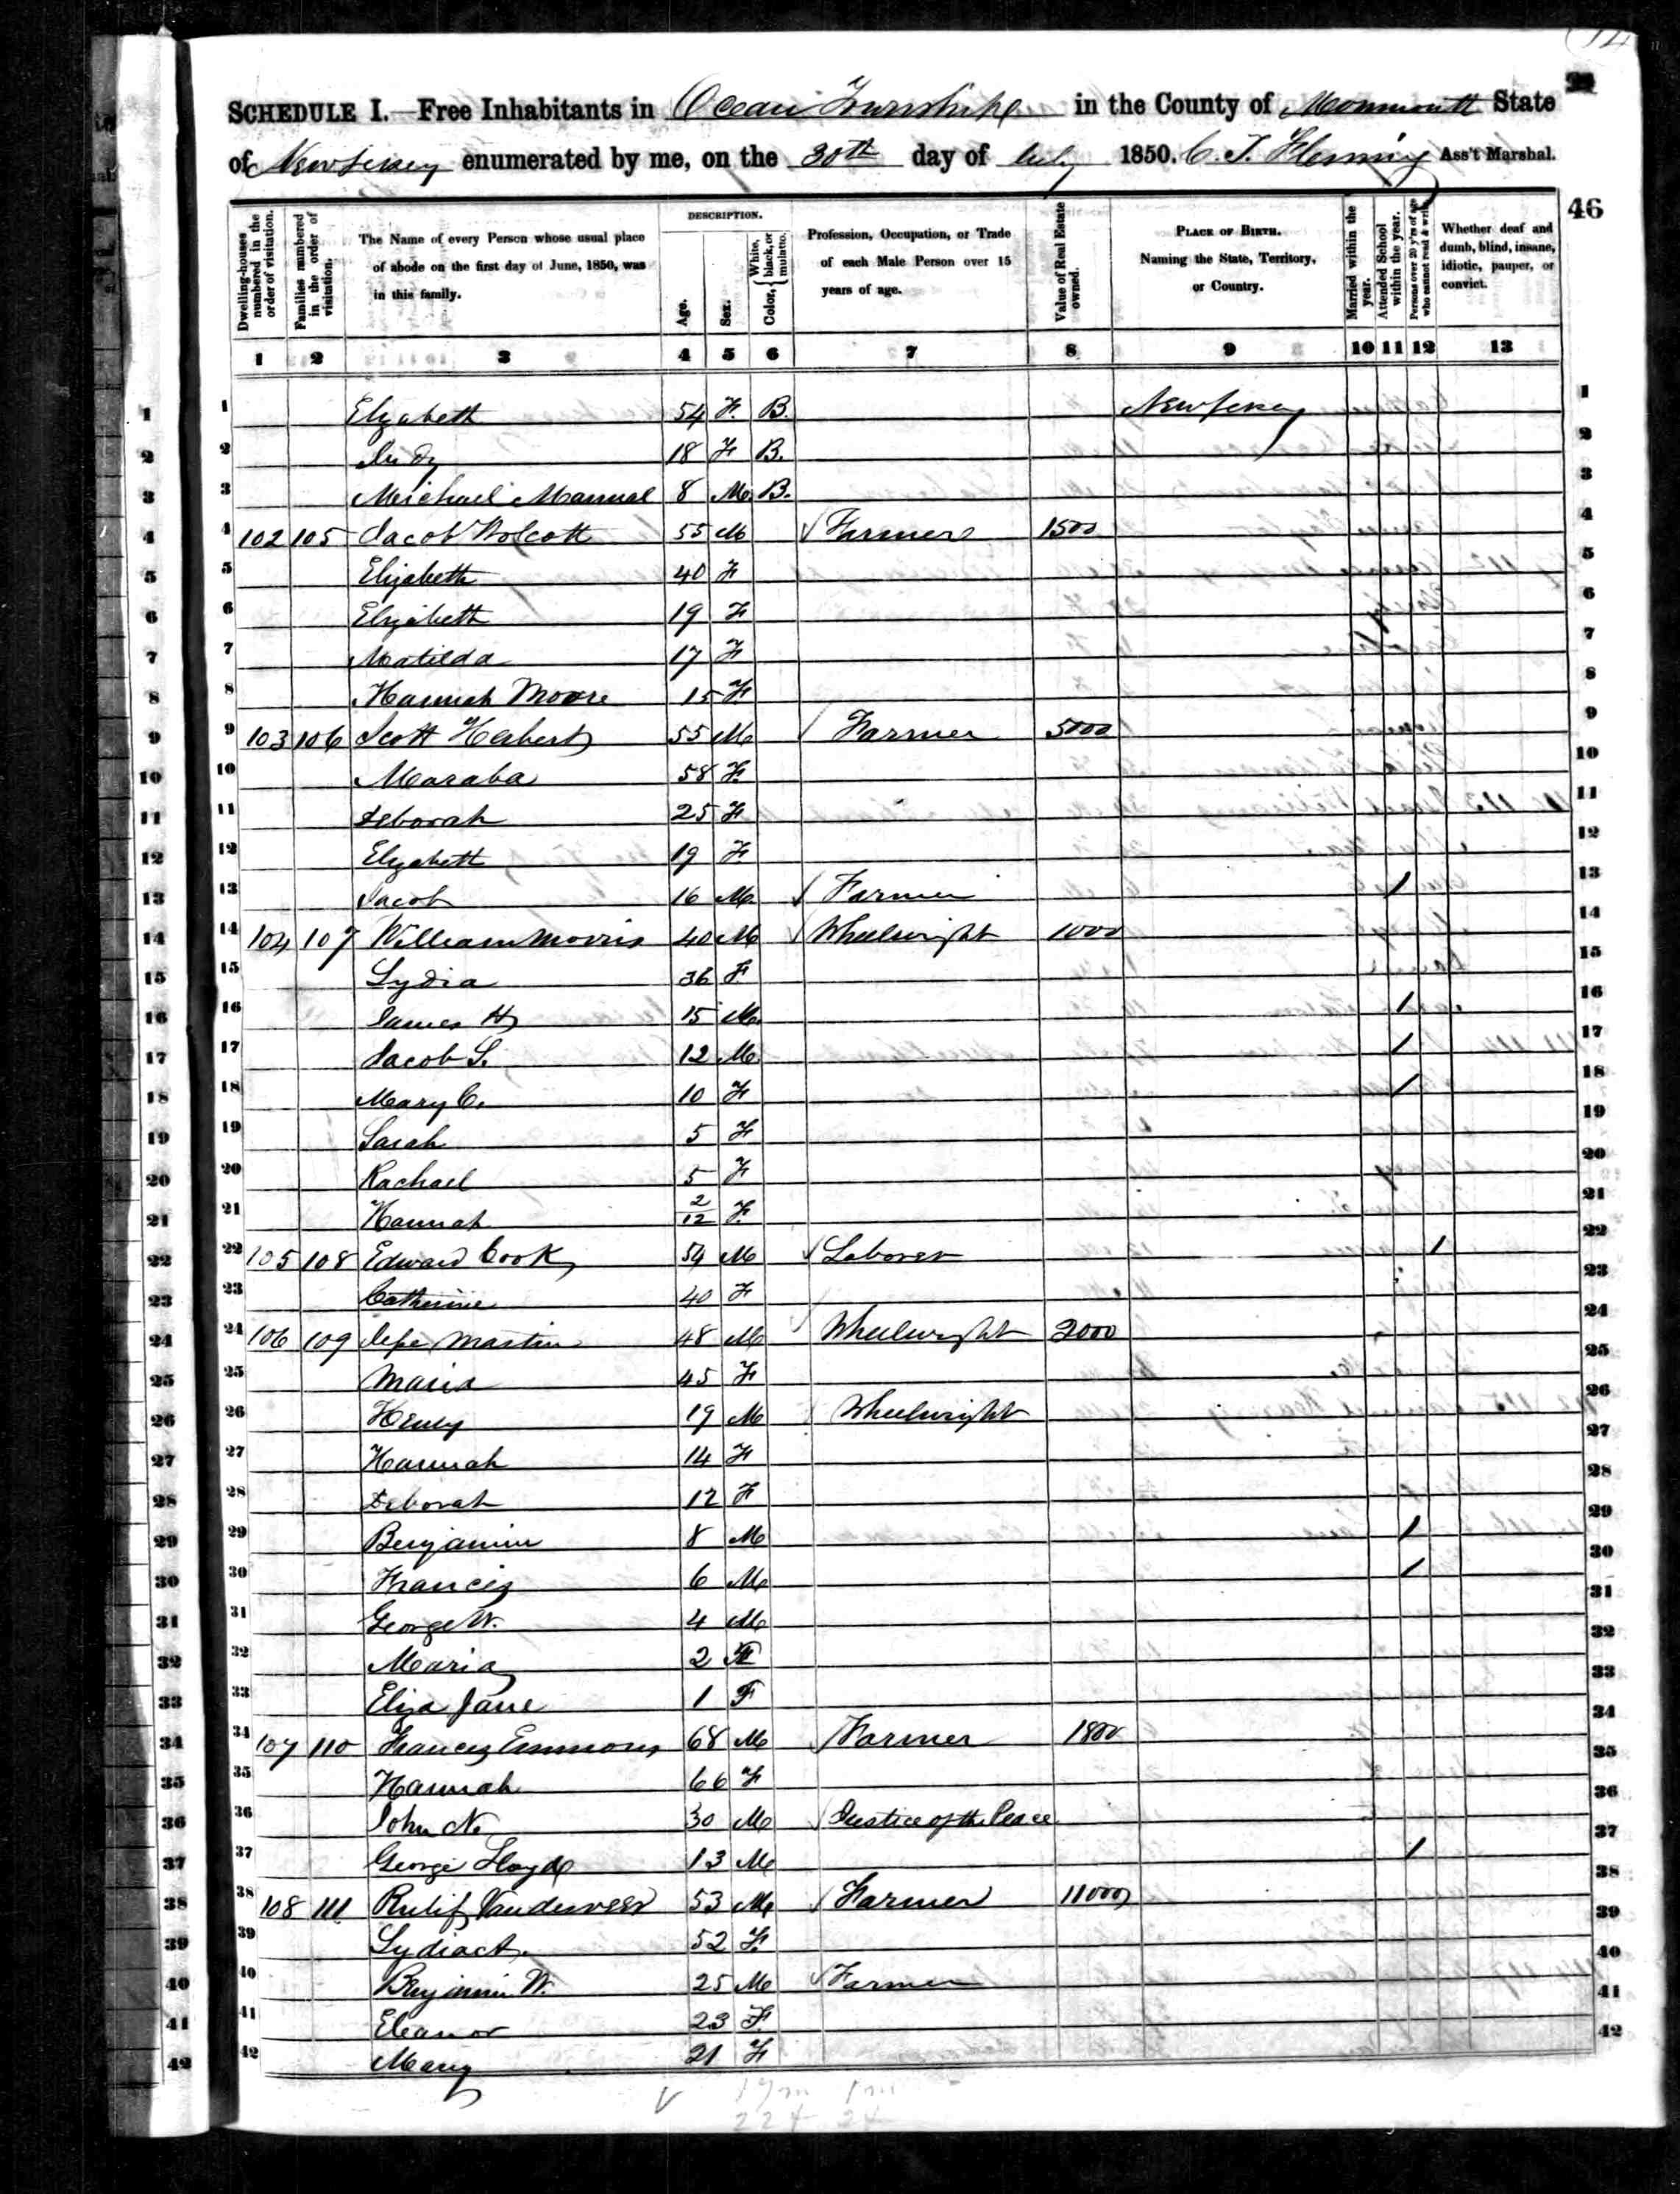 SCHEDULE I.—Free Inhabitants in Ocean Township in the County of Monmouth State
of New Jersey enumerated by me, on the 30th day of July 1850. C. T. Fleming Ass't Marshal.
46
Dwelling-houses numbered in the order of visitation.
Families numbered in the order of visitation.
The Name of every Person whose usual place of abode on the first day of June, 1850, was in this family.
DESCRIPTION.
Age.
Sex.
Color, White, black, or mulatto.
Profession, Occupation, or Trade of each Male Person over 15 years of age.
Value of Real Estate owned.
PLACE OF BIRTH. Naming the State, Territory, or Country.
Married within the year.
Attended School within the year.
Persons over 20 y'rs of age who cannot read & write.
Whether deaf and dumb, blind, insane, idiotic, pauper, or convict.
1 2 3 4 5 6 7 8 9 10 11 12 13
1 Elizabeth 54 F. B. New Jersey 1
2 Judy 18 F B. 2
3 Michael Manual 8 M B. 3
4 102 105 Jacob Wolcott 55 M Farmer 1500 4
5 Elizabeth 40 F 5
6 Elizabeth 19 F 6
7 Matilda 17 F 7
8 Hannah Moore 15 F 8
9 103 106 Scott Herbert 55 M Farmer 5000 9
10 Maraba 58 F. 10
11 Deborah 25 F 11
12 Elizabeth 19 F 12
13 Jacob 16 M Farmer 1 13
14 104 107 William Morris 40 M Wheelwright 1000 14
15 Lydia 36 F 15
16 James H 15 M. 1 16
17 Jacob S. 12 M. 1 17
18 Mary C. 10 F 1 18
19 Sarah 5 F 19
20 Rachael 5 F 20
21 Hannah 2/12 F. 21
22 105 108 Edward Cook 54 M Laborer 1 22
23 Catherine 40 F 23
24 106 109 Jesse Martin 48 M Wheelwright 2000 24
25 Maria 45 F 25
26 Henry 19 M Wheelwright 26
27 Hannah 14 F 27
28 Deborah 12 F 28
29 Benjamin 8 M 1 29
30 Francis 6 M 1 30
31 George W. 4 M 31
32 Maria 2 F 32
33 Eliza Jane 1 F 33
34 107 110 Francis Emmons 68 M Farmer 1800 34
35 Hannah 66 F 35
36 John N. 30 M Justice of the Peace 36
37 George Lloyd 13 M 1 37
38 108 111 Rulif Vanderveer 53 M Farmer 11000 38
39 Lydia A. 52 F. 39
40 Benjamin W. 25 M Farmer 40
41 Eleanor 23 F. 41
42 Mary 21 F 42